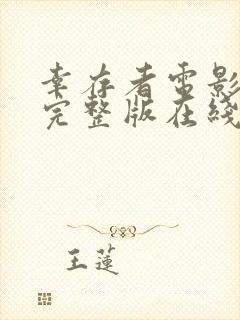 幸存者电影
完整版在线
王莲